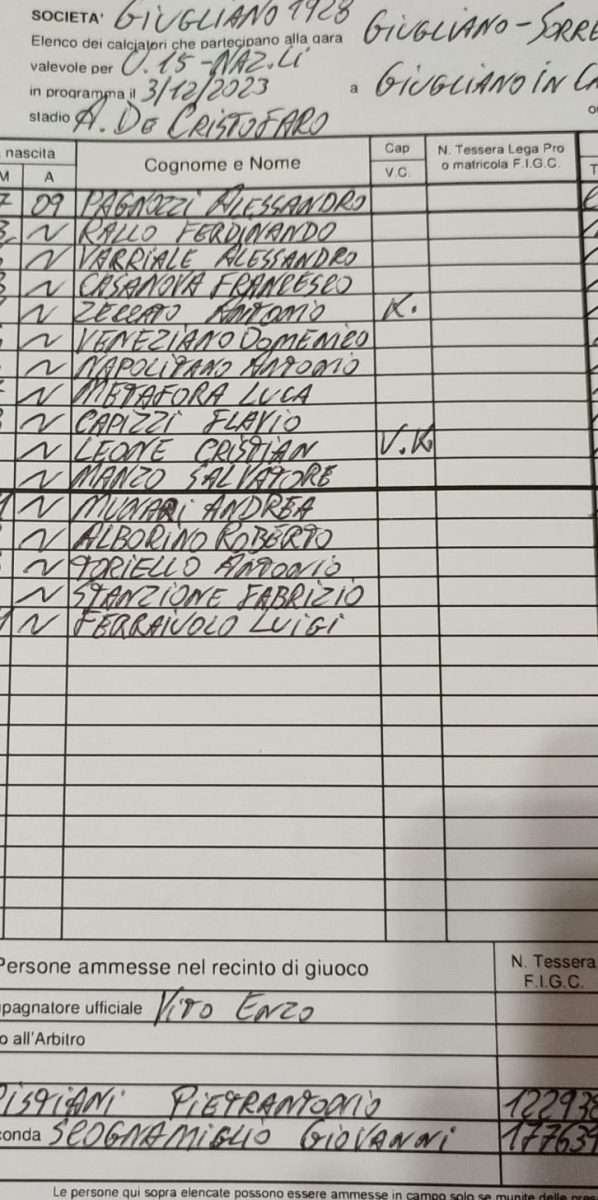 SOCIETA' GIUGLIANO 1928
Elenco dei calciatori che partecipano alla gara GIUGLIANO-SORRE
valevole per U.15-NAZ.LI
in programma il 3/12/2023 a GIUGLIANO IN CA
stadio A. DE CRISTOFARO
nascita Cognome e Nome Cap N. Tessera Lega Pro
M A V.C. o matricola F.I.G.C. T
09 PAGNOZZI ALESSANDRO
N RALLO FERDINANDO
N VARRIALE ALESSANDRO
N CASANOVA FRANCESCO
N ZECCATO ANTONIO K.
N VENEZIANO DOMENICO
N NAPOLITANO ANTONIO
N METAFORA LUCA
N CAPIZZI FLAVIO
N LEONE CRISTIAN V.K
N MANZO SALVATORE
N MUNARI ANDREA
N ALBORINO ROBERTO
N TORIELLO ANTONIO
N STANZIONE FABRIZIO
N FERRAIUOLO LUIGI
Persone ammesse nel recinto di giuoco N. Tessera
F.I.G.C.
pagnatore ufficiale VITO ENZO
o all'Arbitro
PISTIANI PIETRANTONIO 122938
conda SCOGNAMIGLIO GIOVANNI 177639
Le persone qui sopra elencate possono essere ammesse in campo solo se munite delle